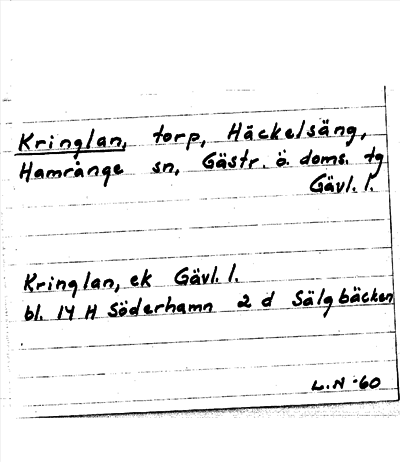 Kringlan, torp, Häckelsäng,
Hamrånge sn, Gästr. ö. doms. tg
Gävl. l.
Kringlan, ek Gävl. l.
bl. 14 H Söderhamn 2 d Sälgbäcken
L.N -60